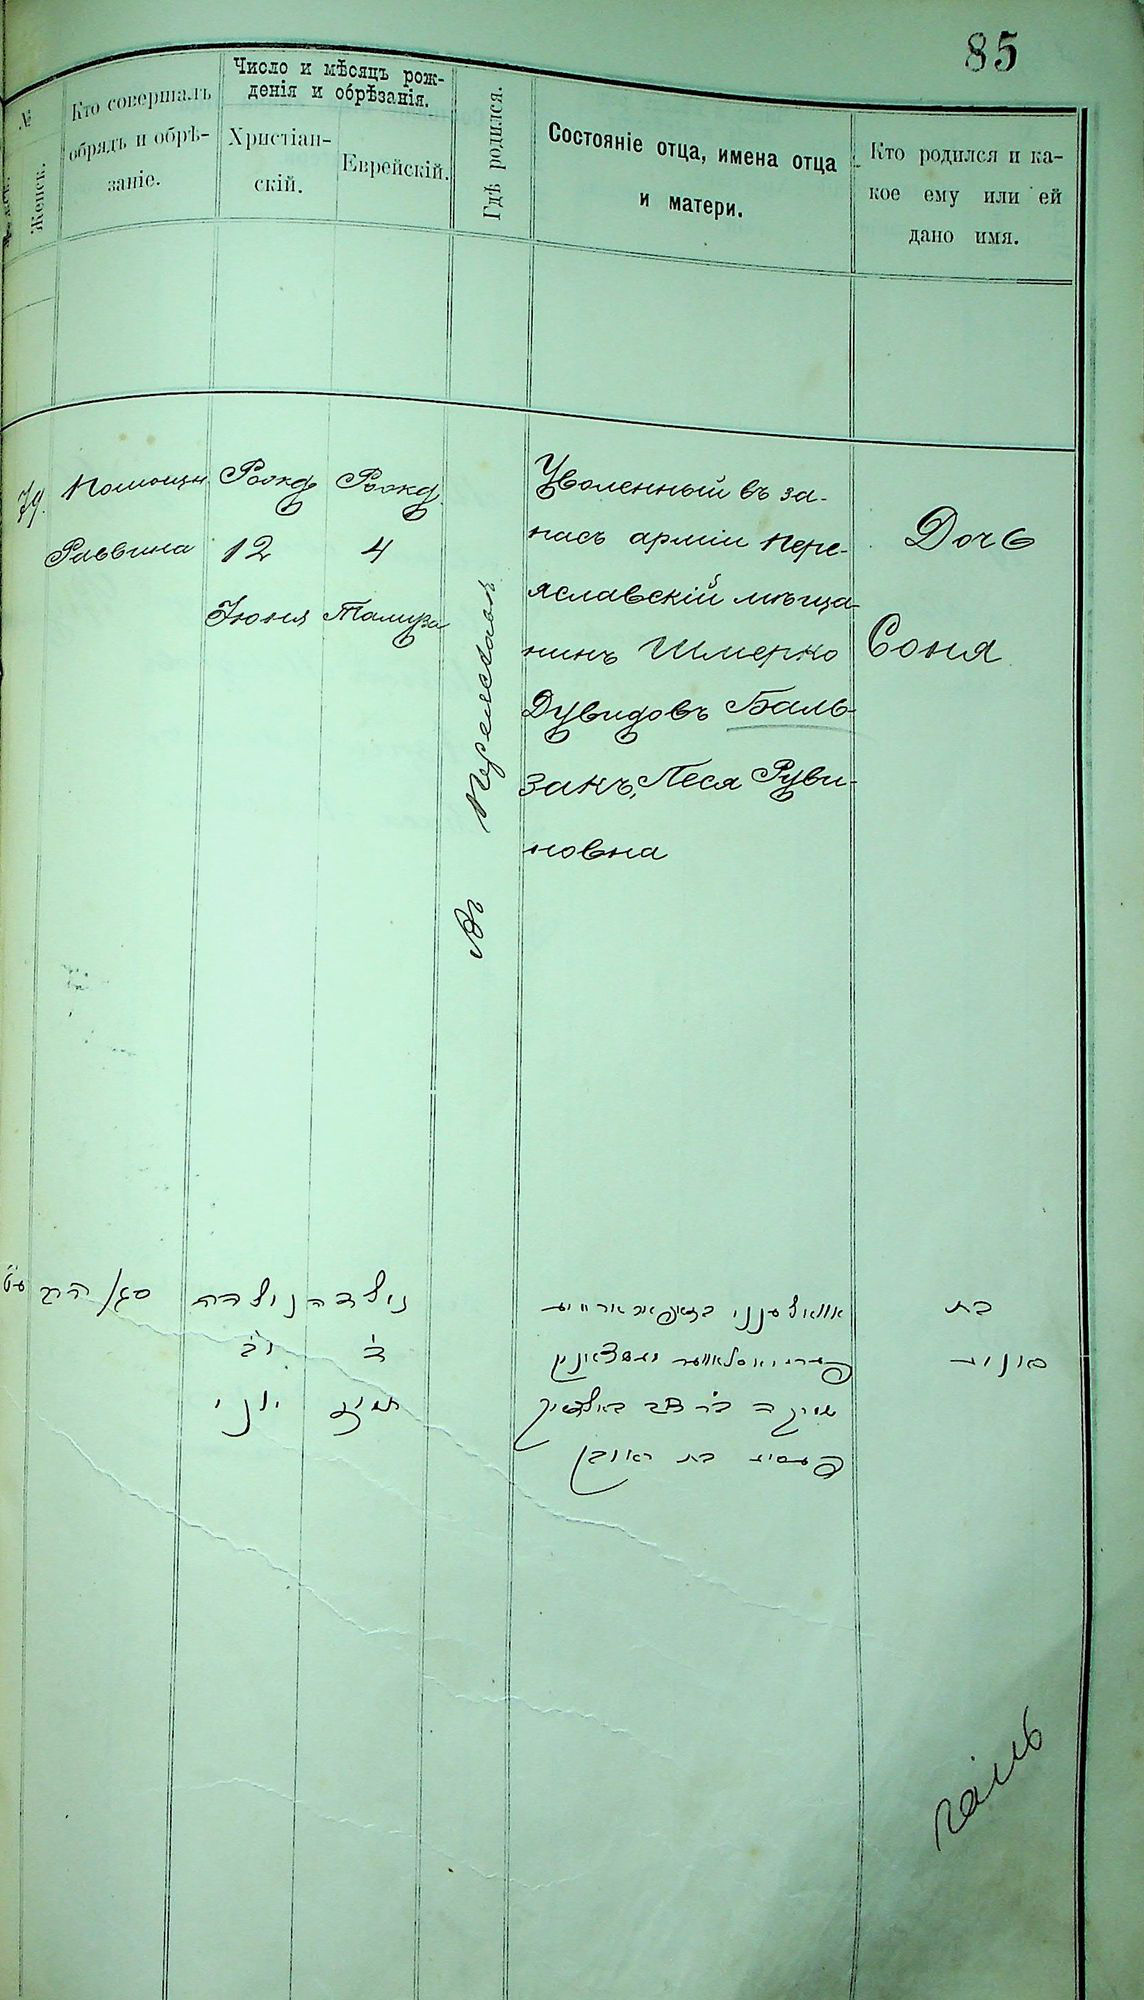 85
№
Женск.
Кто совершалъ
обрядъ и обрѣ-
заніе.
Число и мѣсяцъ рож-
денія и обрѣзанія.
Христіан-
скій.
Еврейскій.
Гдѣ родился.
Состояніе отца, имена отца
и матери.
Кто родился и ка-
кое ему или ей
дано имя.
79.
Помощн.
Раввина
Рожд
12
Іюня
Рожд.
4
Тамуза
Въ Переяславѣ
Уволенный въ за-
пасъ арміи Пере-
яславскій мѣща-
нинъ Шмерко
Дувидовъ Баль-
закъ, Песя Руви-
новна
Дочь
Соня
נולדה
יב
יוני
נולדה
ד
תמוז
בת ראובן
בת